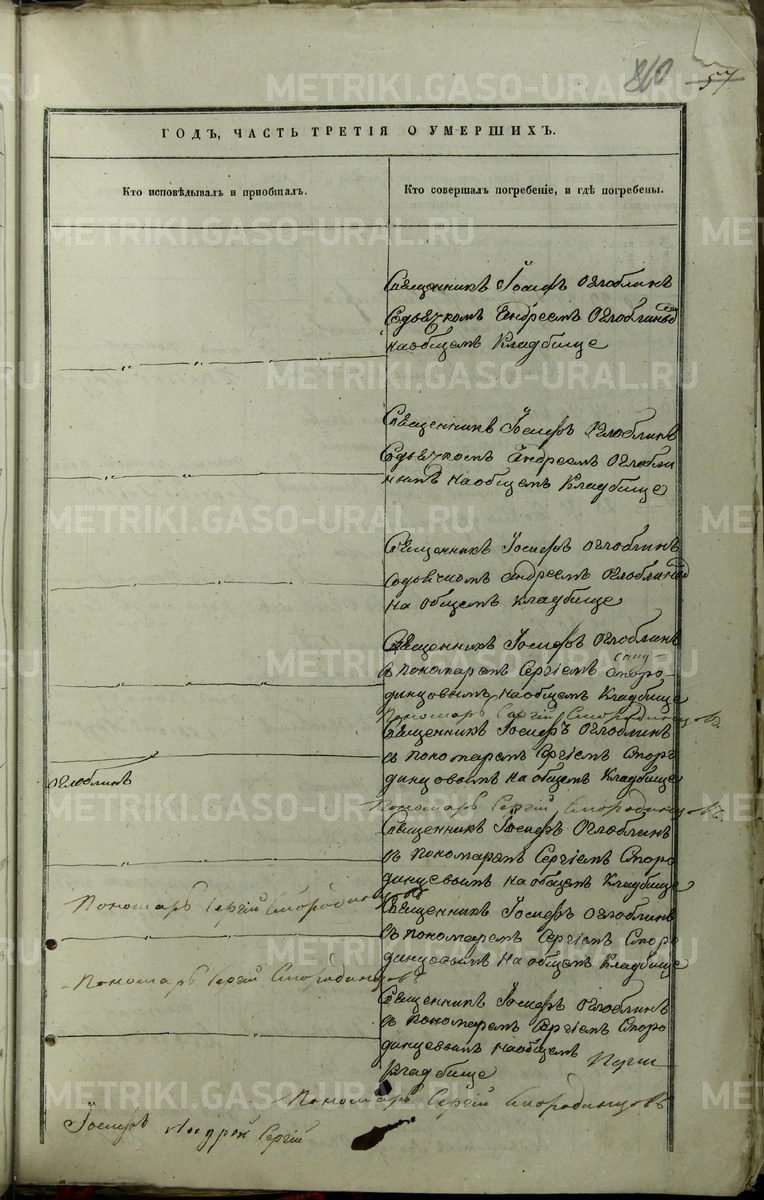 810
57
ГОДЪ, ЧАСТЬ ТРЕТІЯ О УМЕРШИХЪ.
Кто исповѣдывалъ и пріобщалъ.
Кто совершалъ погребеніе, и гдѣ погребены.
Священникъ Іосифъ Оглоблинъ
Содьячкомъ Андреемъ Оглоблинымъ
наобщемъ Кладбище
Священникъ Іосифъ Оглоблинъ
Содьячкомъ Андреемъ Оглобли
нымъ наобщемъ Кладбище
Священникъ Іосифъ Оглоблинъ
содьячкомъ Андреемъ Оглоблинымъ
на общемъ кладбище
Священникъ Іосифъ Оглоблинъ
съ пономаремъ Сергіемъ Сморо
динцовымъ наобщемъ Кладбище
Пономарь Сергій Смородинцовъ
Священникъ Іосифъ Оглоблинъ
съ пономаремъ Сергіемъ Сморо
динцовымъ на общемъ Кладбище
Оглоблинъ
Пономарь Сергій Смородинцовъ
Священникъ Іосифъ Оглоблинъ
съ пономаремъ Сергіемъ Сморо
динцевымъ на общемъ Кладбище
Пономарь Сергій Смородинцовъ
Священникъ Іосифъ Оглоблинъ
съ пономаремъ Сергіемъ Сморо
динцевымъ на общемъ Кладбище
Пономарь Сергій Смородинцовъ
Священникъ Іосифъ Оглоблинъ
съ пономаремъ Сергіемъ Сморо
динцевымъ наобщемъ
Кладбище
Пономарь Сергій Смородинцовъ
Іосифъ Андрей Сергій
METRIKI.GASO-URAL.RU